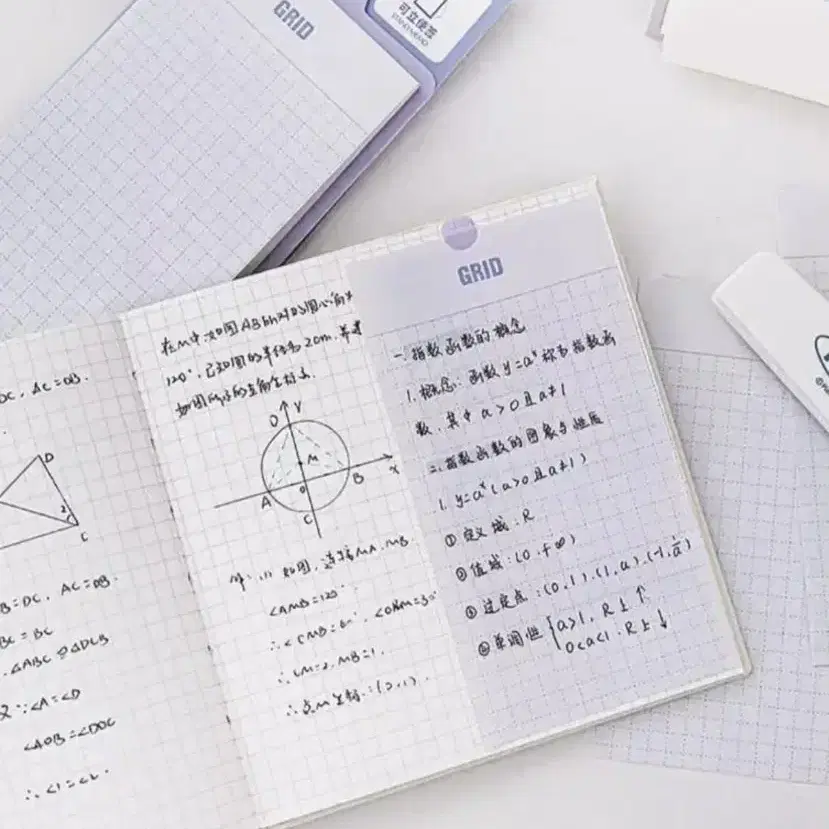 GRID
可立便签
GRID
DC, AC=DB.
D
2
C
B=DC, AC=DB.
BC=BC
△ABC≌△DCB
又∵∠A=∠D
∠AOB=∠DOC
∴∠1=∠2.
120°,已知圆的半径为20m,
D
y
M
A
O
B
x
C
如图,连接MA,MB.
∠AMB=120°
∴∠CMB=60°,∠OBM=30°
∴OM=2,MB=1.
∴点M坐标:(0,1).
一.指数函数的概念
1.概念:函数y=aˣ称为指数函
数,其中a>0且a≠1
二.指数函数的图象与性质
1. y=aˣ(a>0且a≠1)
①定义域:R
②值域:(0,+∞)
③过定点:(0,1),(1,a),(-1,1/a)
④单调性{a>1,R上↑
0<a<1,R上↓